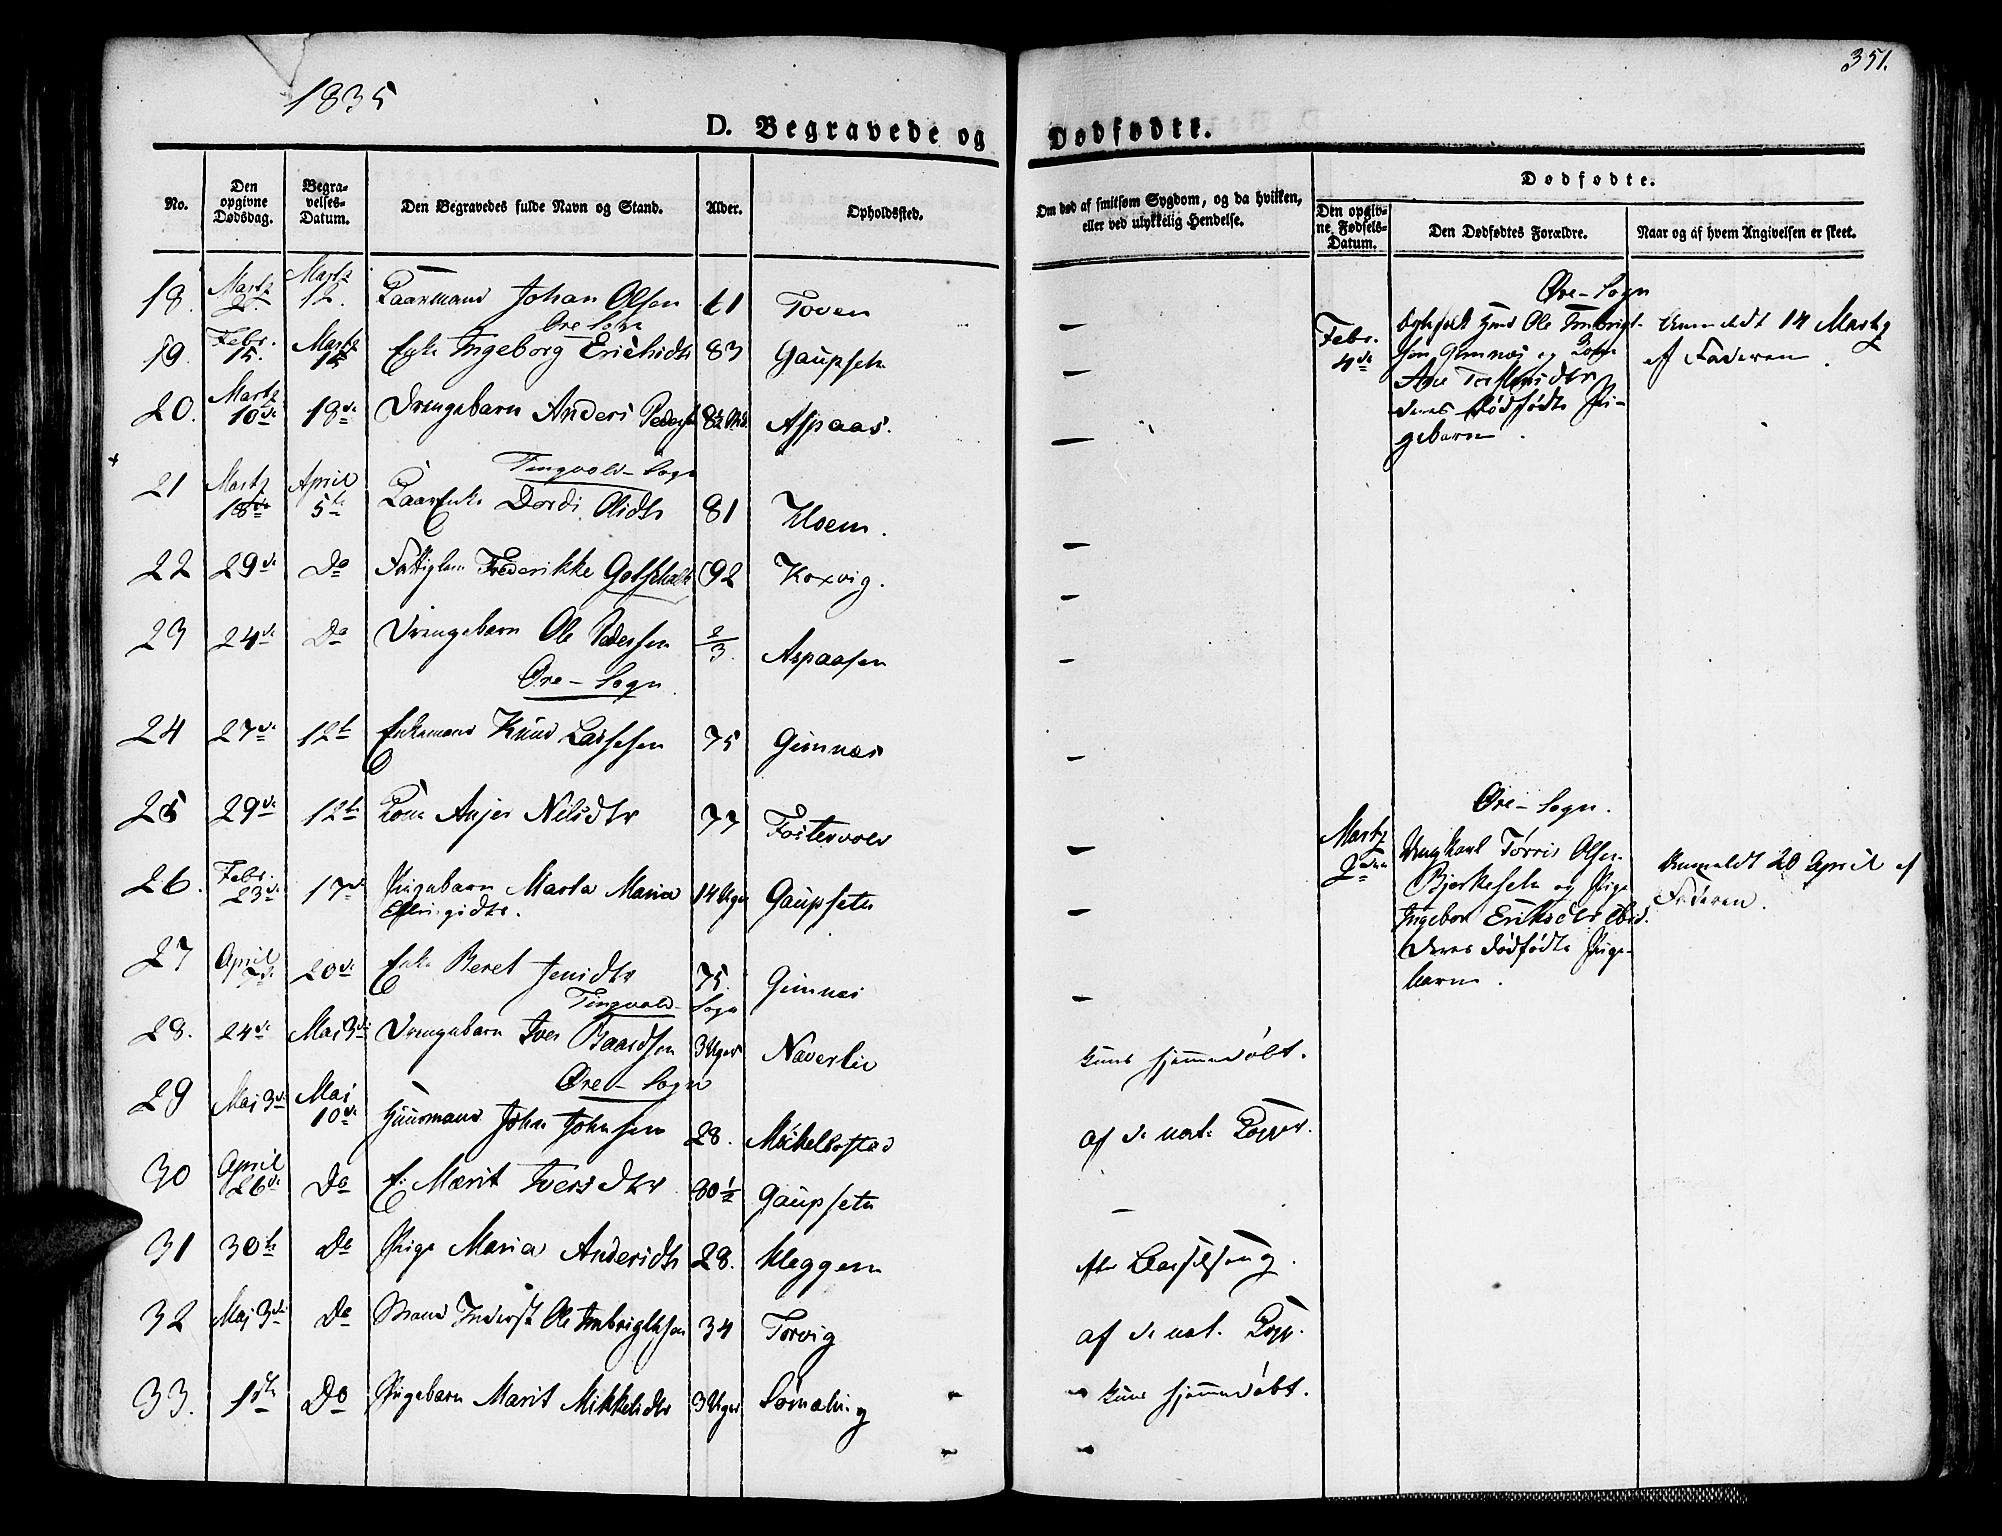 1835
351.
D. Begravede og Dødfødte.
No.
Den opgivne Dødsdag.
Begravelses-Datum.
Den Begravedes fulde Navn og Stand.
Alder.
Opholdssted.
Om død af smitsom Sygdom, og da hvilken, eller ved ulykkelig Hendelse.
Dødfødte.
Den opgivne Fødsels-Datum.
Den Dødfødtes Forældre.
Naar og af hvem Angivelsen er skeet.
18. Martz Martz 12. Johan Olsen 61 Toven —
Øre Sogn
19. Febr. 15. Martz Enke Ingeborg Erichsdtr 83 Gaupsetn —
20. Martz 10de 18de Drengebarn Anders Pedersen 8½ Md. Aspaas. —
Tingvold-Sogn
21 Martz 18de April 5te Dordi Olsdtr 81 Kloem. —
22 29de Do Fattiglem Frederikke Gotschalk 92 Koxvig. —
23 24de Do Drengebarn Ole Pedersen 2/3. Aspaasen —
Øre-Sogn.
24 27de 12te Enkemand Knud Lassesen 75 Gimnæs —
25 29de 12te Kone Anjer Nilsdtr 77 Fostervold —
26. Febr. 23de 17de Pigebarn Marta Maria 14 Uger Gaupsetn —
27 April 20de Enke Beret Jensdtr 75. Gimnæs —
Tingvold-Sogn
28. 24de Mai 3de Drengebarn Iver Baardsen 3 Uger Naverlie kuns hjemmedøbt.
Øre-Sogn
29 Mai 3de Mai 10de Huusmand Johan Johnsen 28. Mikkelbostad af de nat. Kopper.
30 April 26de Do E. Marit Iversdtr 80½ Gaupsetn —
31 30te Do Pige Maria Andersdtr 28. Kleggem efter Barselseng.
32 Mai 3de Do Mand Inderst Ole Ingbrigtsen 34 Torvig af de nat. Kopp.
33. 1ste Do Pigebarn Marit Mikkelsdtr 3 Uger kuns hjemmedøbt.
Øre-Sogn
Febr. 4de
Ole Ingbrigt-
sen Gimnæs og Kone
Ane
deres dødfødte Pi-
gebarn.
Anmeldt 14 Martz
af Faderen.
Øre-Sogn.
Martz
2den
Ungkarl Torris Olsen
Bjerkesetn og Pige
Ingebor Eriksdtr ibid.
deres dødfødte Pige-
barn.
Anmeldt 20 April af
Faderen.